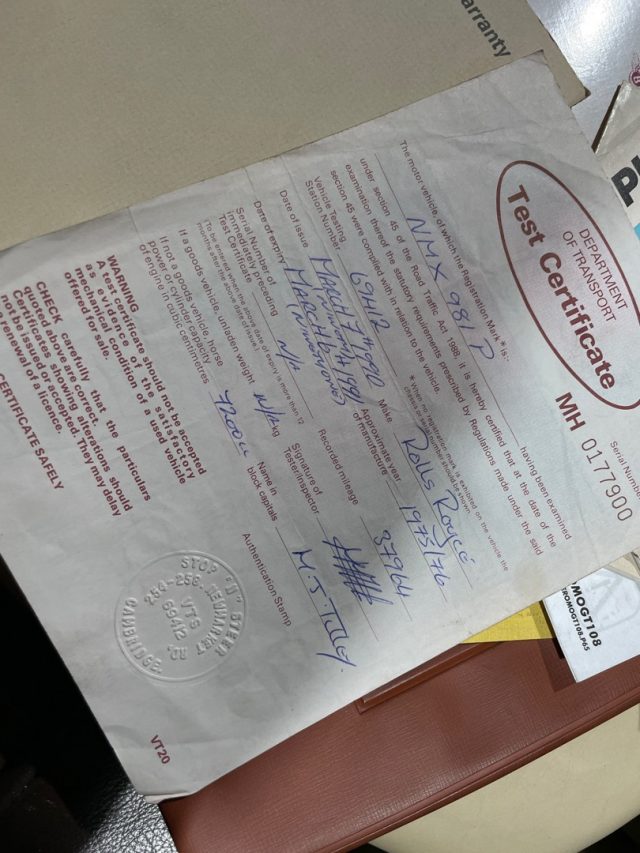 arranty
DEPARTMENT
OF TRANSPORT
Test Certificate
Serial Numb
MH 0177900
The motor vehicle of which the Registration Mark * is:
NMX 981 P
having been examined
under section 45 of the Road Traffic Act 1988, it is hereby certified that at the date of the
examination thereof the statutory requirements prescribed by Regulations made under the said
section 45 were complied with in relation to the vehicle.
* When no registration mark is exhibited on the vehicle the
chassis or serial number should be shown.
Vehicle Testing
Station Number 69412
Make Rolls Royce
Date of issue MARCH 7th 1990
Approximate year
of manufacture 1975/76
Date of expiry MARCH 16th 1991
(NINETYONE)
Recorded mileage 37964
Serial Number of
immediately preceding
Test Certificate N/A
(To be entered when the above date of expiry is more than 12
months after the above date of issue)
Signature of
Tester/Inspector
If a goods vehicle, unladen weight N/A kg
If not a goods vehicle horse
power or cylinder capacity
of engine in cubic centimetres 7200cc
Name in
block capitals M. J. Tilley.
WARNING
A test certificate should not be accepted
as evidence of the satisfactory
mechanical condition of a used vehicle
offered for sale.
Authentication Stamp
CHECK carefully that the particulars
quoted above are correct.
Certificates showing alterations should
not be issued or accepted. They may delay
renewal of a licence.
CERTIFICATE SAFELY
STOP "N" STEER
254-256, NEWMARKET RD,
VTS
69412
VT20
OMOGT108
TROMOGT108.P65